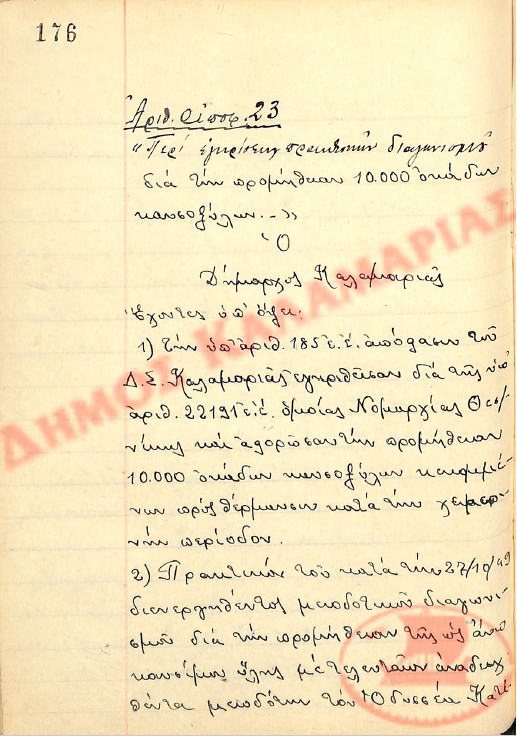 176
Ἀριθ. Ἀποφ. 23
"Περί ἐγκρίσεως πρακτικῶν διαγωνισμοῦ
διά τήν προμήθειαν 10.000 ὀκάδων
καυσοξύλων.-"
Ὁ
Δήμαρχος Καλαμαριᾶς
Ἔχοντες ὑπ' ὄψει:
1) Τήν ὑπ' ἀριθ. 185 ἐ.ἔ. ἀπόφασιν τοῦ
Δ.Σ. Καλαμαριᾶς ἐγκριθεῖσαν διά τῆς ὑπ'
ἀριθ. 22191 ἐ.ἔ. ὁμοίας Νομαρχίας Θεσ
νίκης καί ἀφορῶσαν τήν προμήθειαν
10.000 ὀκάδων καυσοξύλων κεκομμέ
νων πρός θέρμανσιν κατά τήν χειμερι
νήν περίοδον.
2) Πρακτικόν τοῦ κατά τήν 27/10/49
διενεργηθέντος μειοδοτικοῦ διαγωνι
σμοῦ διά τήν προμήθειαν τῆς ὡς ἄνω
καυσίμου ὕλης μέ τελευταῖον ἀναδειχ
θέντα μειοδότην τόν Ὀδυσσέα
ΔΗΜΟΣ ΚΑΛΑΜΑΡΙΑΣ